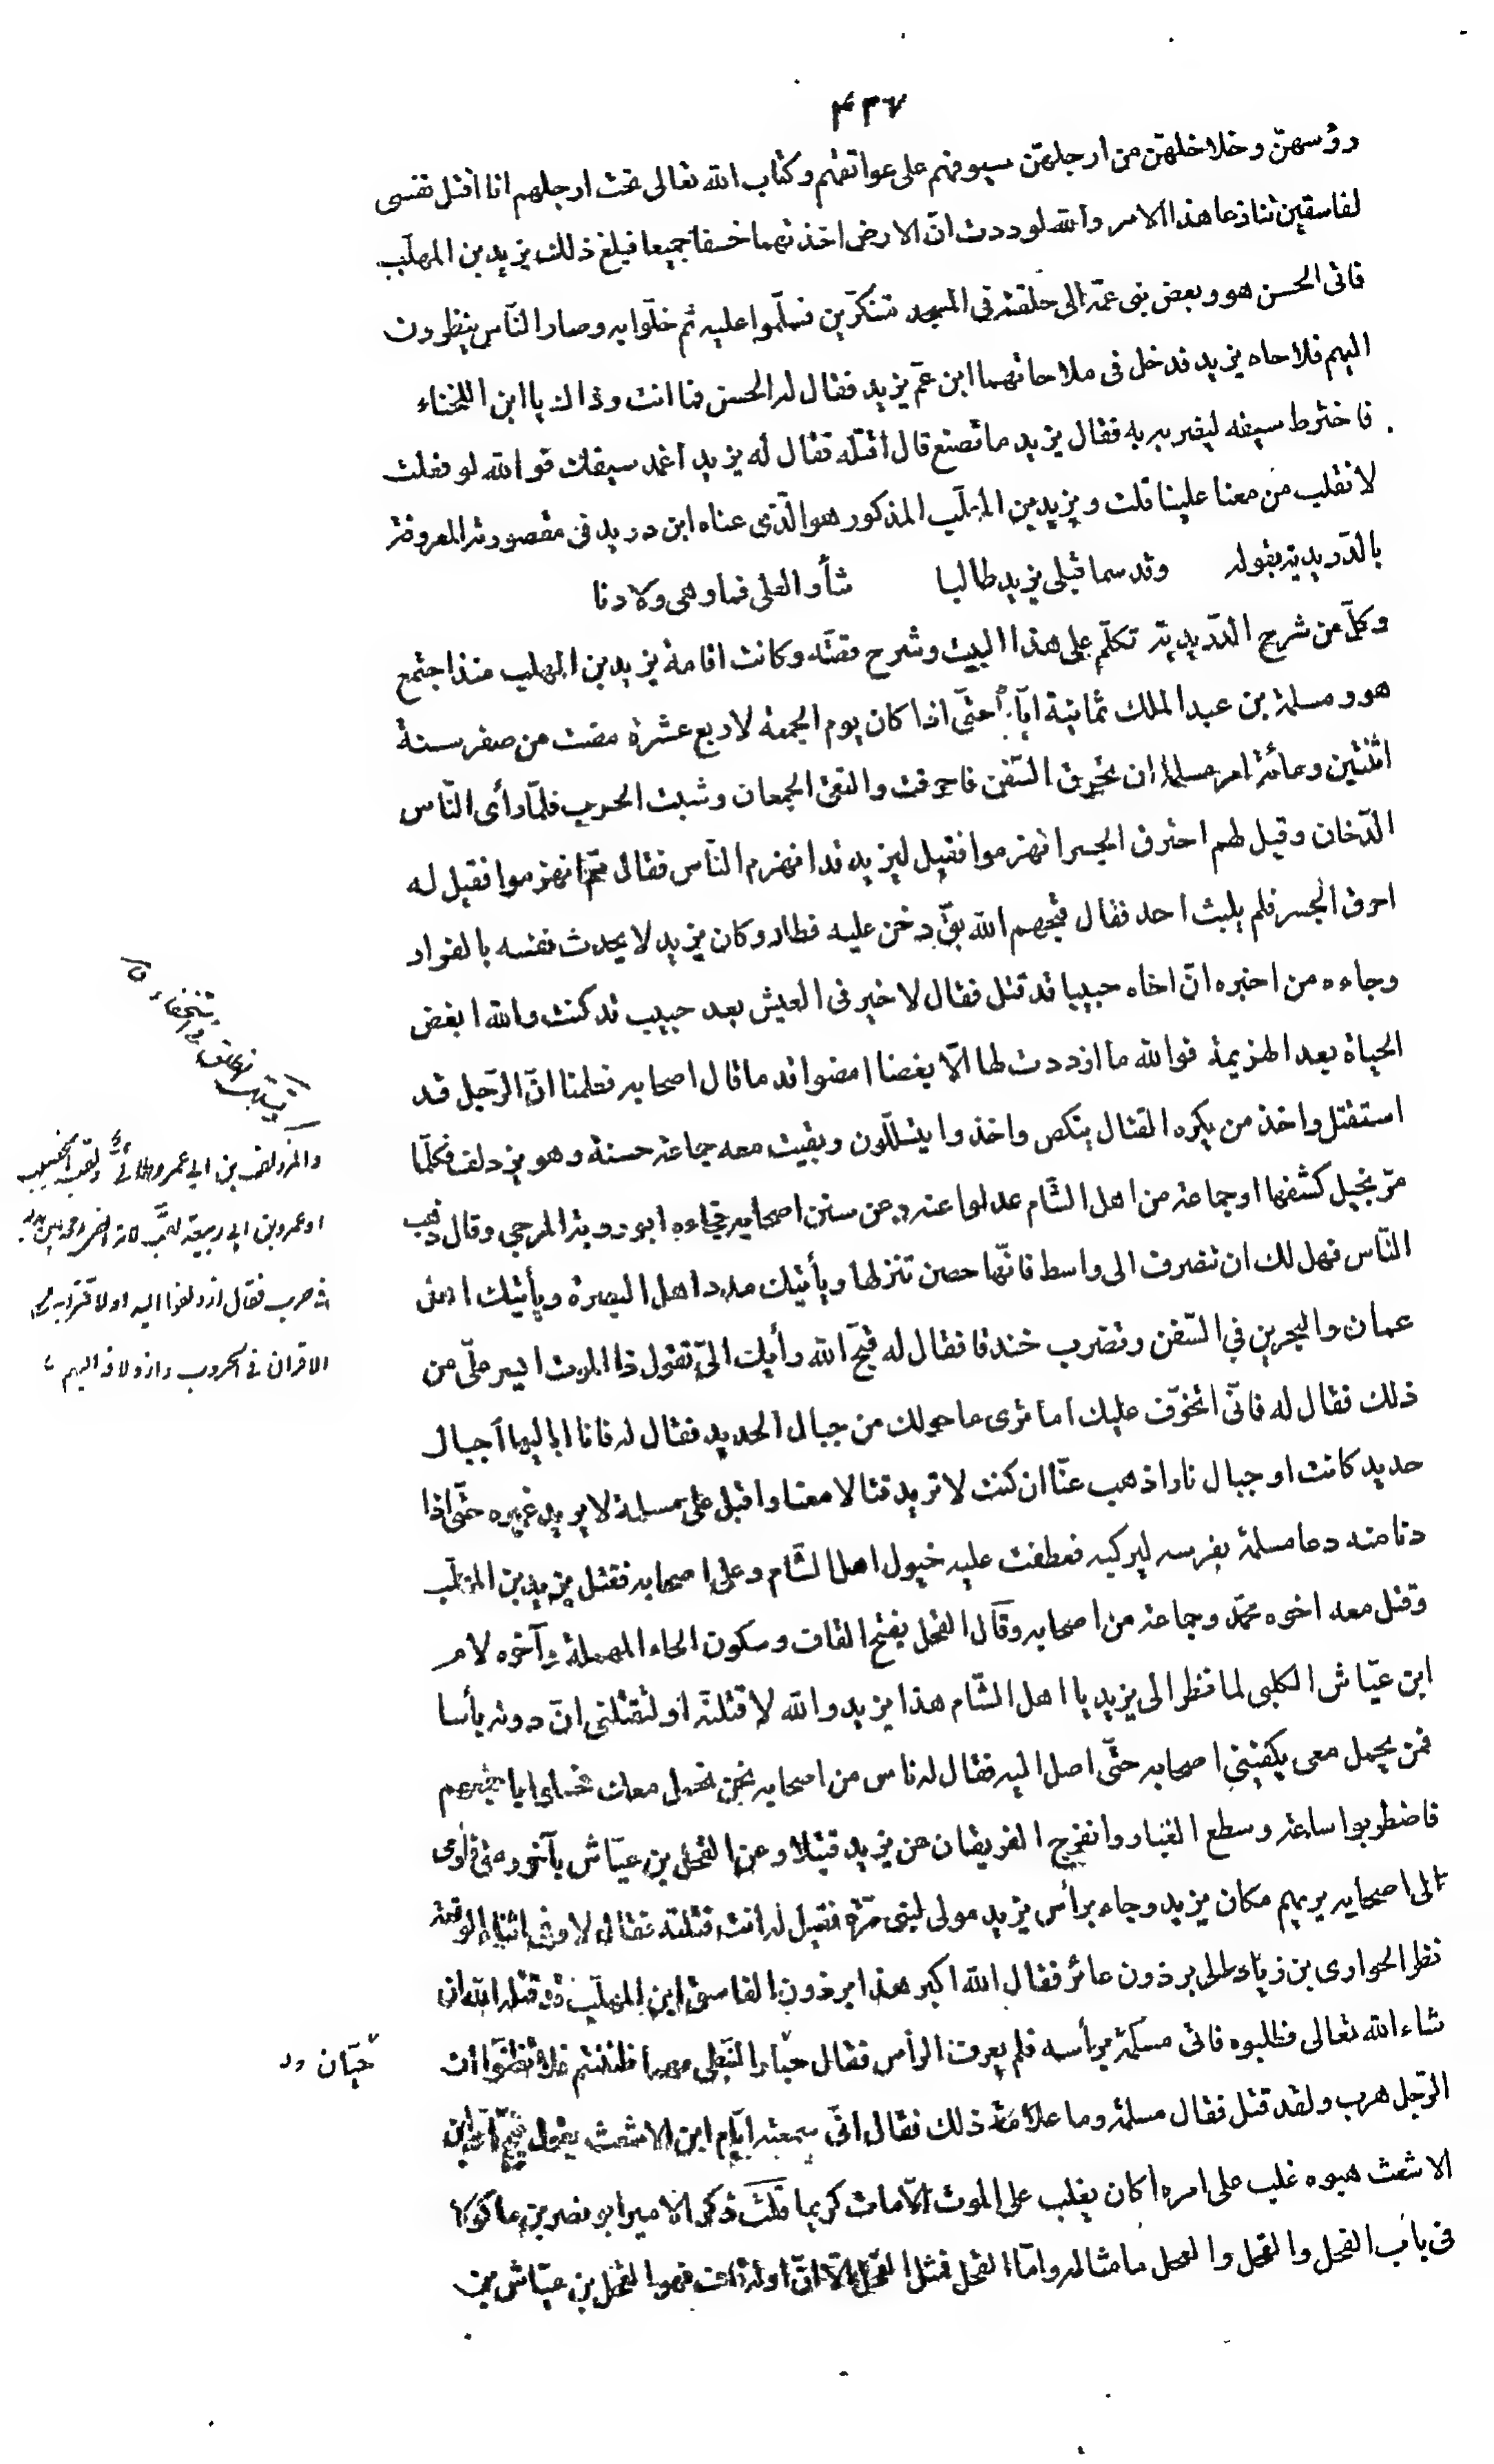 ٤٣٧
رؤسهنّ وخلاخلهنّ من ارجلهنّ سيوفهم على عواتقهم وكتاب الله تعالى تحت ارجلهم انا اقتل نفسى
لفاسقين تنازعا هذا الامر والله لوددت انّ الارض اخذتهما خسفا جميعا فبلغ ذلك يزيد بن المهلّب
فاتى الحسن هو وبعض بنى عمّه الى حلقته فى المسجد متنكّرين فسلّموا عليه ثم خلّوا به وصار النّاس ينظرون
اليهم فلاحاه يزيد فدخل فى ملاحاتهما ابن عمّ يزيد فقال له الحسن فما انت وذاك يا ابن اللخناء
فاخترط سيفه ليضربه به فقال يزيد ما تصنع قال اقتله فقال له يزيد اغمد سيفك فوالله لو فعلت
لانقلب من معنا علينا قلت ويزيد بن المهلّب المذكور هو الّذى عناه ابن دريد فى مقصورته المعروفة
بالدّريدية بقوله وقد سما قبلى يزيد طالبا شأو العلى فما وهى ولا ونا
وكلّ من شرح الدّريدية تكلّم على هذا البيت وشرح قصّته وكانت اقامة يزيد بن المهلب منذ اجتمع
هو ومسلمة بن عبد الملك ثمانية ايّام حتّى اذا كان يوم الجمعة لاربع عشرة مضت من صفر سنة
اثنتين ومائة امر مسلمة ان تحرق السّفن فاحرقت والتقى الجمعان وشبت الحرب فلمّا رأى النّاس
الدّخان وقيل لهم احترق الجسر انهزموا فقيل ليزيد قد انهزم النّاس فقال ممّ انهزموا فقيل له
احرق الجسر فلم يلبث احد فقال قبحهم الله بقّ دخن عليه فطار وكان يزيد لا يحدث نفسه بالفرار
وجاءه من اخبره انّ اخاه حبيبا قد قتل فقال لا خير فى العيش بعد حبيب قد كنت والله ابغض
الحياة بعد الهزيمة فوالله ما ازددت لها الّا بغضا امضوا قدما قال اصحابه فعلمنا انّ الرّجل قد
استقتل واخذ من يكره القتال ينكص واخذوا ينسلّلون وبقيت معه جماعة حسنة وهو يزدلف فكلّما
مرّ بخيل كشفها او جماعة من اهل الشّام عدلوا عنه وعن سنن اصحابه فجاءه ابو روبة المرجى وقال ذهب
النّاس فهل لك ان تنصرف الى واسط فانّها حصن تنزلها ويأتيك مدد اهل البصرة ويأتيك اهل
عمان والبحرين في السّفن وتضرب خندقا فقال له قبّح الله رأيك الىّ تقول ذا الموت ايسر علىّ من
ذلك فقال له فانّى اتخوّف عليك اما ترى ما حولك من جبال الحديد فقال له فانا اباليها أجبال
حديد كانت او جبال نار اذهب عنّا ان كنت لا تريد قتالا معنا واقبل على مسلمة لا يريد غيره حتّى اذا
دنا منه دعا مسلمة بفرسه ليركبه فعطفت عليه خيول اهل الشّام وعلى اصحابه فقتل يزيد بن المهلّب
وقتل معه اخوه محمّد وجماعة من اصحابه وقال القحل بفتح القاف وسكون الحاء المهملة وآخره لام
ابن عيّاش الكلبى لما نظر الى يزيد يا اهل الشّام هذا يزيد والله لاقتلنّه او ليقتلنى انّ دونه بأسا
فمن يحمل معى يكفينى اصحابه حتّى اصل اليه فقال له ناس من اصحابه نحن نحمل معك
فاضطربوا ساعة وسطع الغبار وانفرج الفريقان عن يزيد قتيلا وعن القحل بن عيّاش بآخر رمق فاومى
الى اصحابه يريهم مكان يزيد وجاء برأس يزيد مولى لبنى مرّة فقيل له انت قتلته فقال لا وفى اثناء الوقعة
نظر الحوارى بن زياد الى برذون عائر فقال الله اكبر هذا برذون الفاسق ابن المهلّب قد قتله الله ان
شاء الله تعالى فطلبوه فاتى مسلمة برأسه فلم يعرف الرأس فقال حيّان النّبطى مهما ظننتم فلا تظنّوا ان
حيّان
الرّجل هرب ولقد قتل فقال مسلمة وما علامة ذلك فقال انّى سمعته ايّام ابن الاشعث يقول قبّح الله ابن
الاشعث هبوه غلب على امره أكان يغلب على الموت الّا مات كريما قلت ذكر الامير ابو نصر بن ماكولا
فى باب الفحل والقحل والعجل ما مثاله وامّا القحل فمثل الفحل الّا انّ اوله قاف فهو القحل بن عيّاش بن
والمزدلف بن ابي عمرو الطائي لقب
او عمرو بن ابي ربيعة لقب لانه
حرب فقال ازدلفوا اليه او لاقترابه من
الاقران في الحروب وازدلافه اليهم